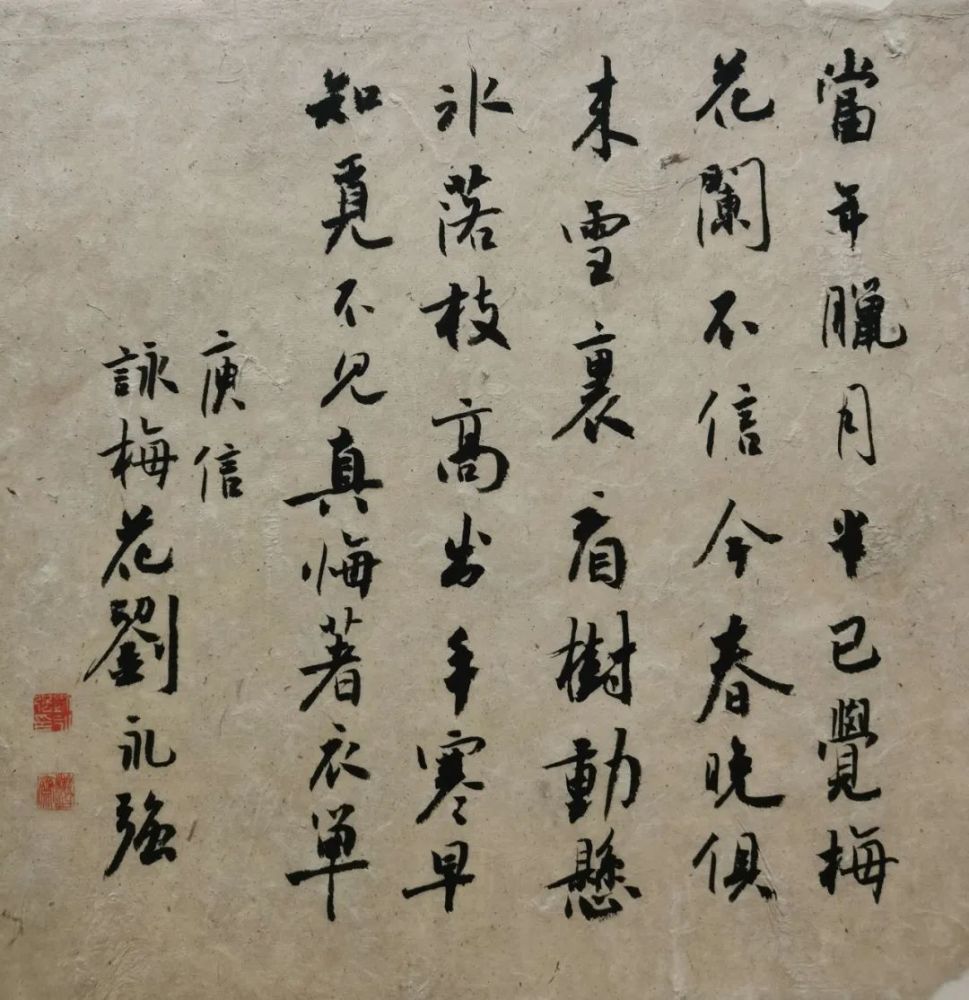 當年臘月半已覺梅
花闌不信今春晚俱
来雪裏看樹動懸
冰落枝高出手寒早
知覓不見真悔著衣單
庾信
詠梅花劉永強